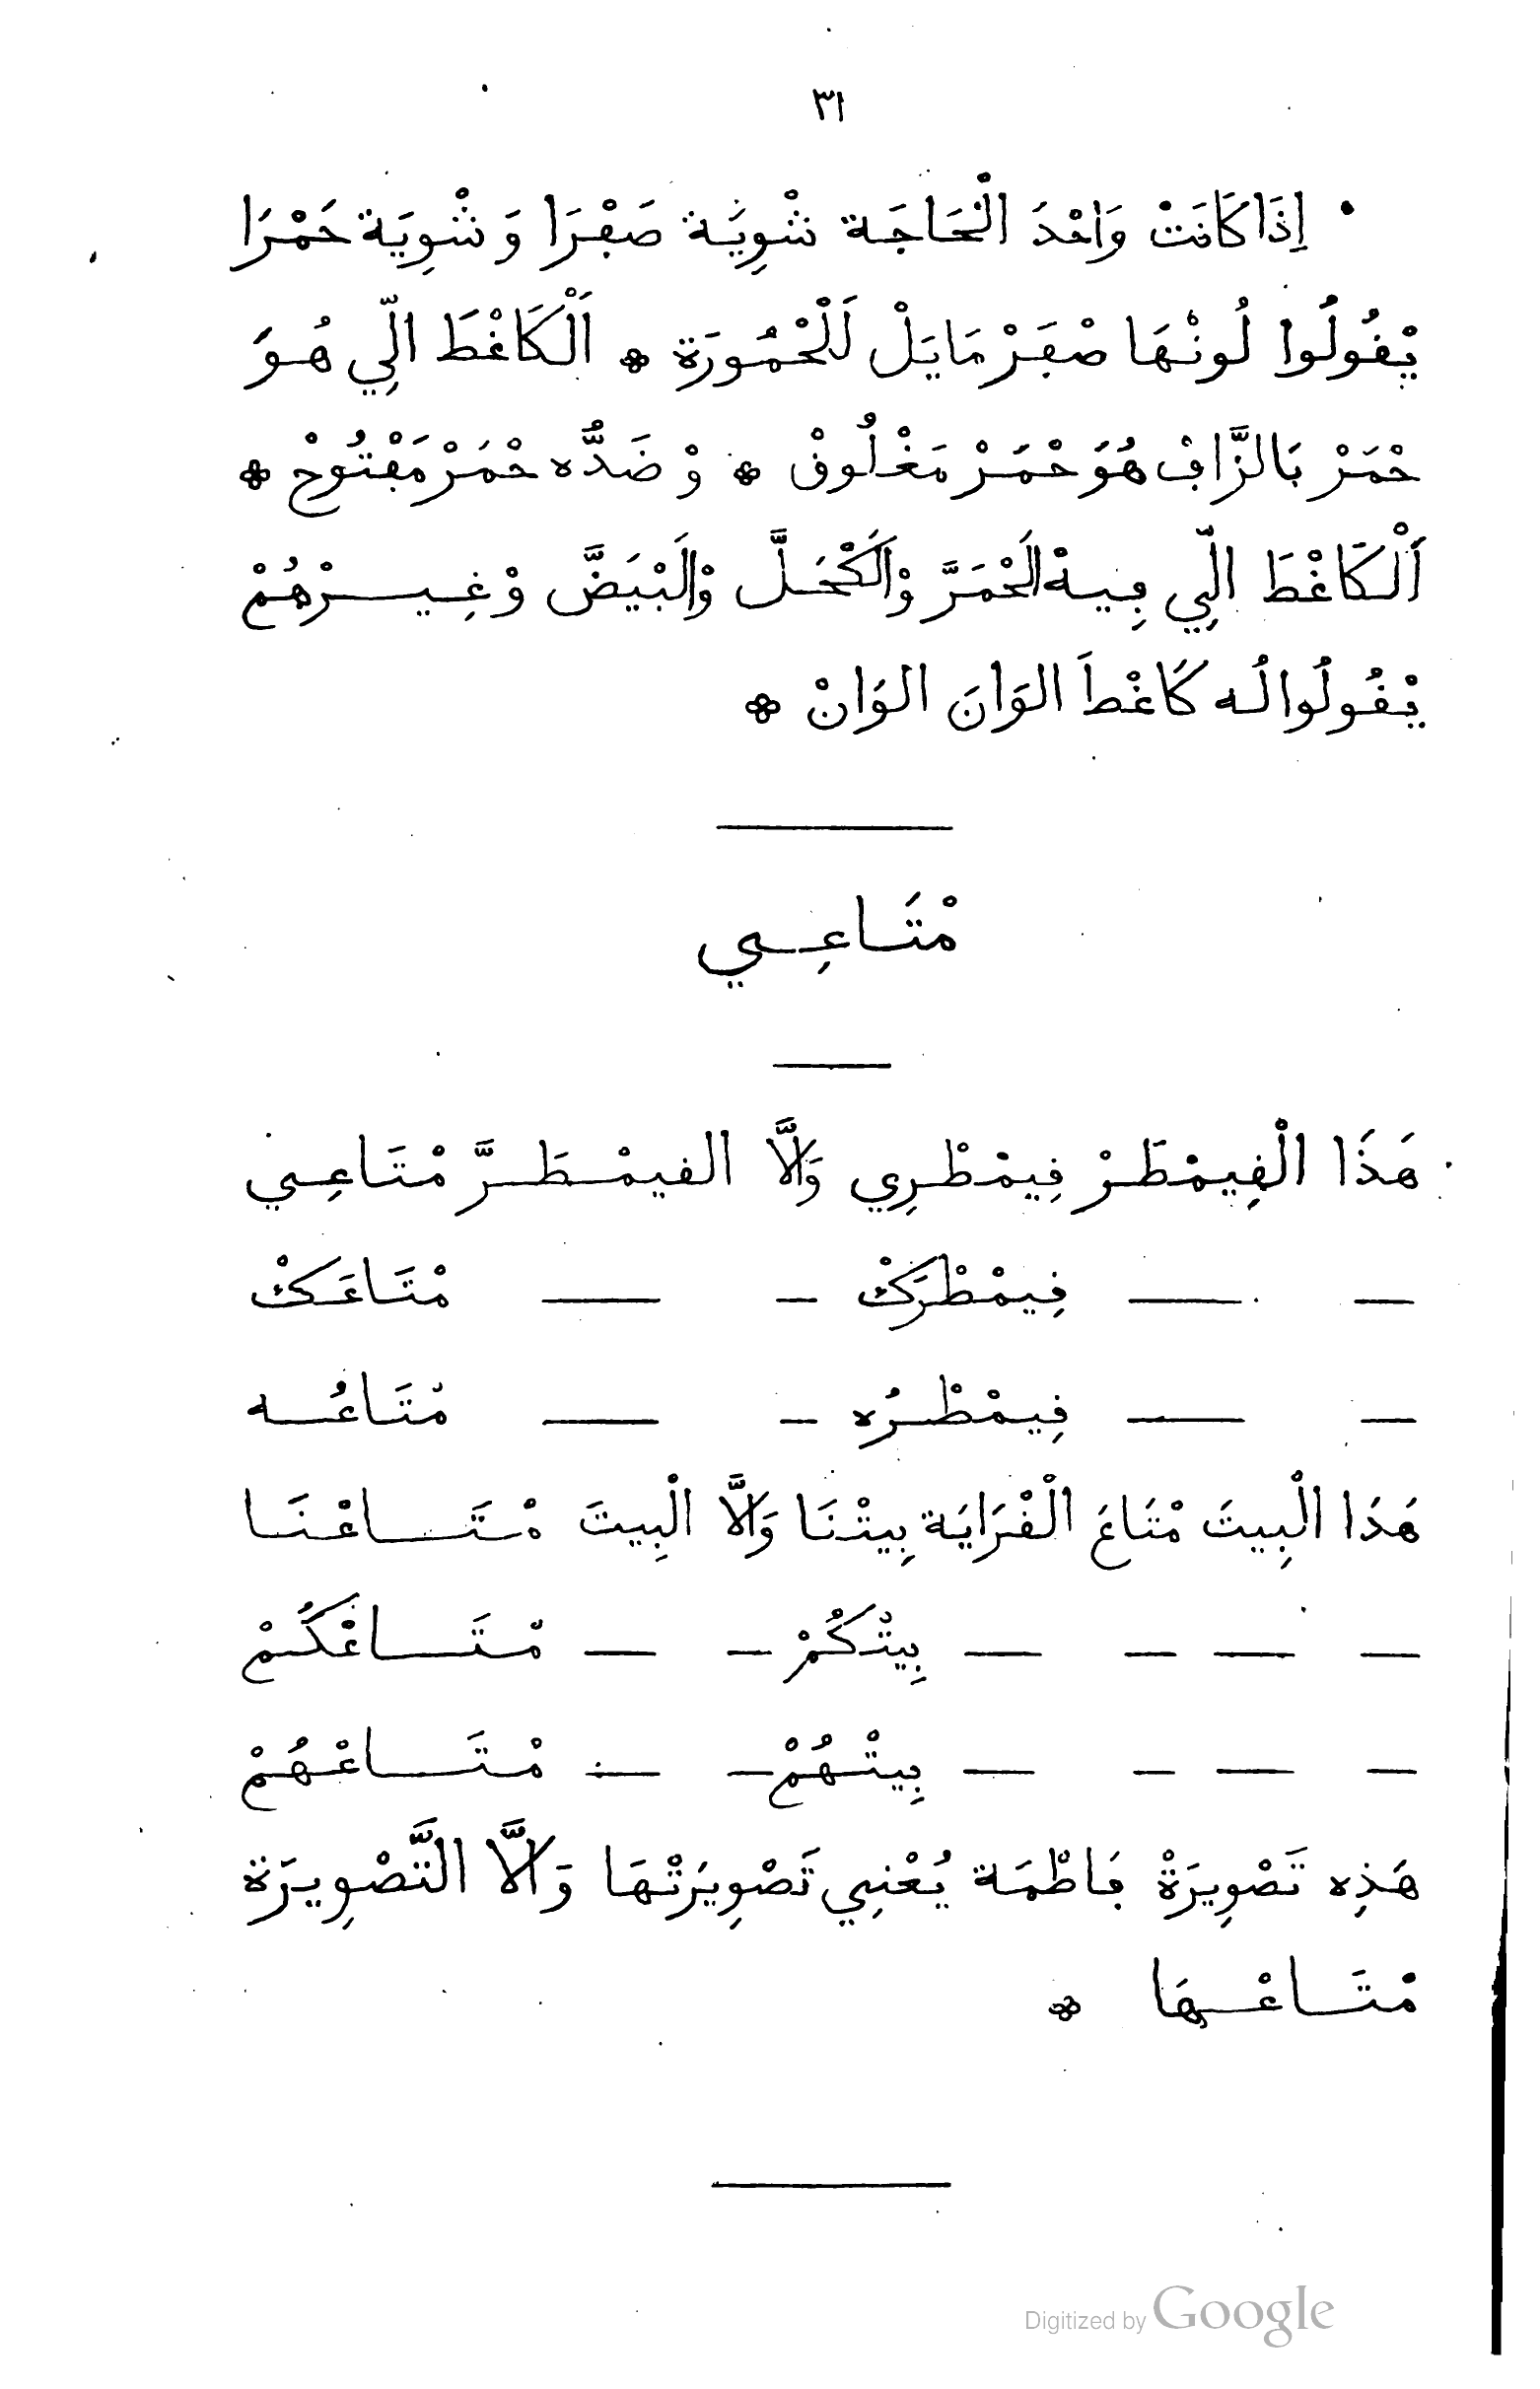 ٣١
إِذَا كَانَتْ وَاحْدَ الْحَاجَة شْوِيَة صَڢْرَا وَ شْوِيَة حَمْرَا
يْڧُولُوا لُونْهَا صْڢَرْ مَايَلْ لَلْحْمُورَة * اَلْكَاغْطَ الِّي هُوَ
حْمَرْ بَالزَّاڢْ هُوَ حْمَرْ مَغْلُوڧْ * وْ ضَدُّه حْمَرْ مَڢْتُوحْ *
اَلْكَاغْطَ الِّي ڢِيهْ الَحْمَرَّ وْالَكْحَلَّ وْالَبْيَضَّ وْ غِيــرْهُمْ
يْڧُولُوا لُه كَاغْطَ الوَانَ الوَانْ *
مْتَـاعِـي
هَذَا الْڧِيمْطَرْ ڧِيمْطْرِي وَلَّا الڧيمْطَرَّ مْتَاعِي
— — ڧِيمْطْرَكْ - — مْتَاعَكْ
— — ڧِيمْطْرُه - — مْتَاعُه
هَذَا الْبِيتَ مْتَاعَ الْڧْرَايَة بِيتْنَا وَلَّا الْبِيتَ مْتَـاعْنَا
— — — — بِيتْكُمْ - — مْتَـاعْكُمْ
— — — — بِيتْهُمْ - — مْتَـاعْهُمْ
هَذِه تَصْوِيرَةْ ڢَاطْمَة يَعْنِي تَصْوِيرَتْهَا وَلَّا التَّصْوِيرَة
مْتَـاعْـهَا *
Digitized by Google